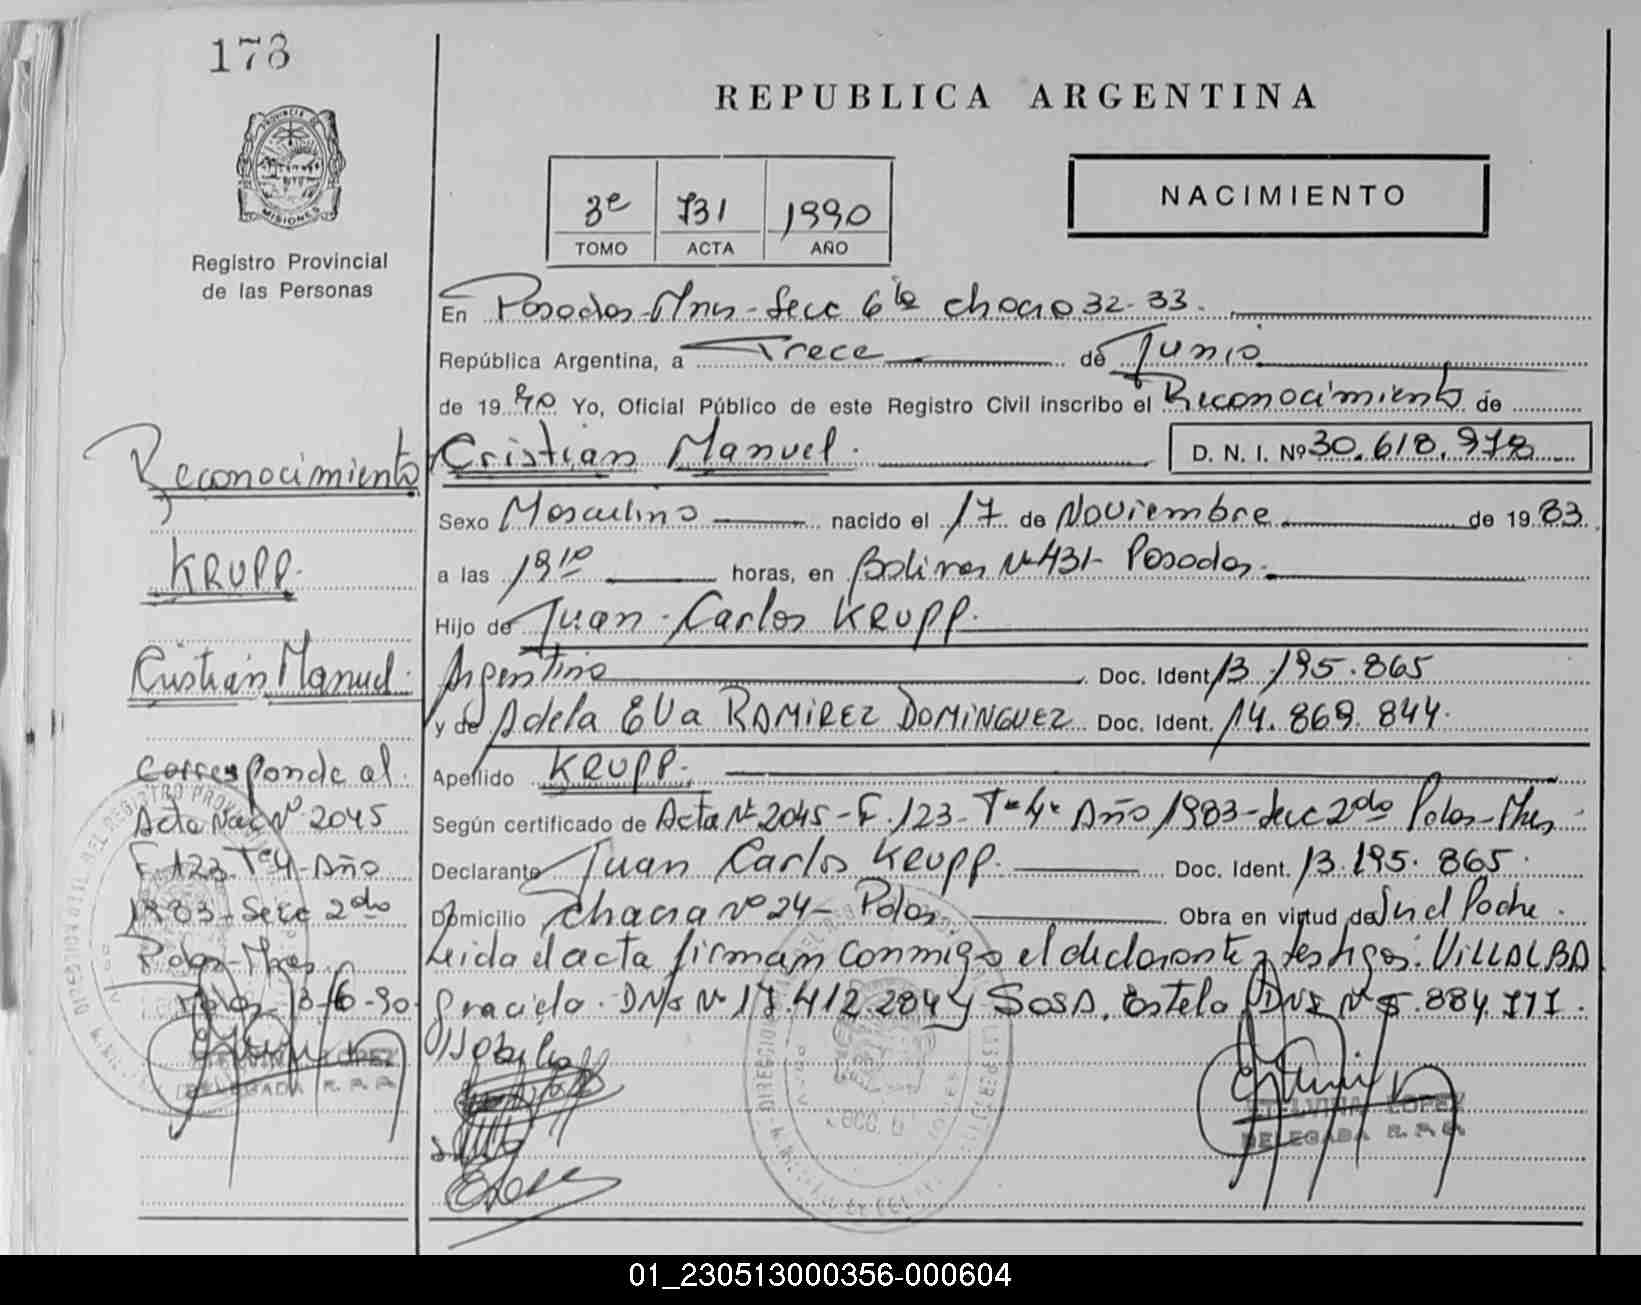 173
REPUBLICA ARGENTINA
NACIMIENTO
PROVINCIA DE
MISIONES
Registro Provincial
de las Personas
3º 731 1990
TOMO ACTA AÑO
En Posadas-Mnes-Secc 6ta chacra 32-33.
República Argentina, a Trece de Junio
de 1990 Yo, Oficial Público de este Registro Civil inscribo el Reconocimiento de
Cristian Manuel. D. N. I. Nº 30.618.978
Sexo Masculino nacido el 17 de Noviembre de 1983.
a las 1910 horas, en Bolivar Nº 431- Posadas.
Hijo de Juan-Carlos KRUPP.
Argentino Doc. Ident. 13.195.865
y de Adela Eva RAMIREZ DOMINGUEZ Doc. Ident. 14.869.844.
Apellido KRUPP.
Según certificado de Acta Nº 2045-F.123-Tº4º Año 1983-Secc 2do Pdas-Mnes
Declarante Juan Carlos KRUPP. Doc. Ident. 13.195.865.
Domicilio chacra nº 24- Pdas. Obra en virtud de Ser el Padre.
Leida el acta firman conmigo el declarante y testigos: VILLALBA
Graciela. DNI Nº 17.412.284 y SOSA, Estela DNI Nº 5.884.777.
ETELVINA LOPEZ
DELEGADA R. P. P.
Reconocimiento
KRUPP.
Cristian Manuel.
Corresponde al
Acta Nac Nº 2045
F 123 Tº4-Año
1983-Secc 2do
Pdas-Mnes.
Pdas-13-6-90
LOPEZ
DELEGADA R. P. P.
01_230513000356-000604